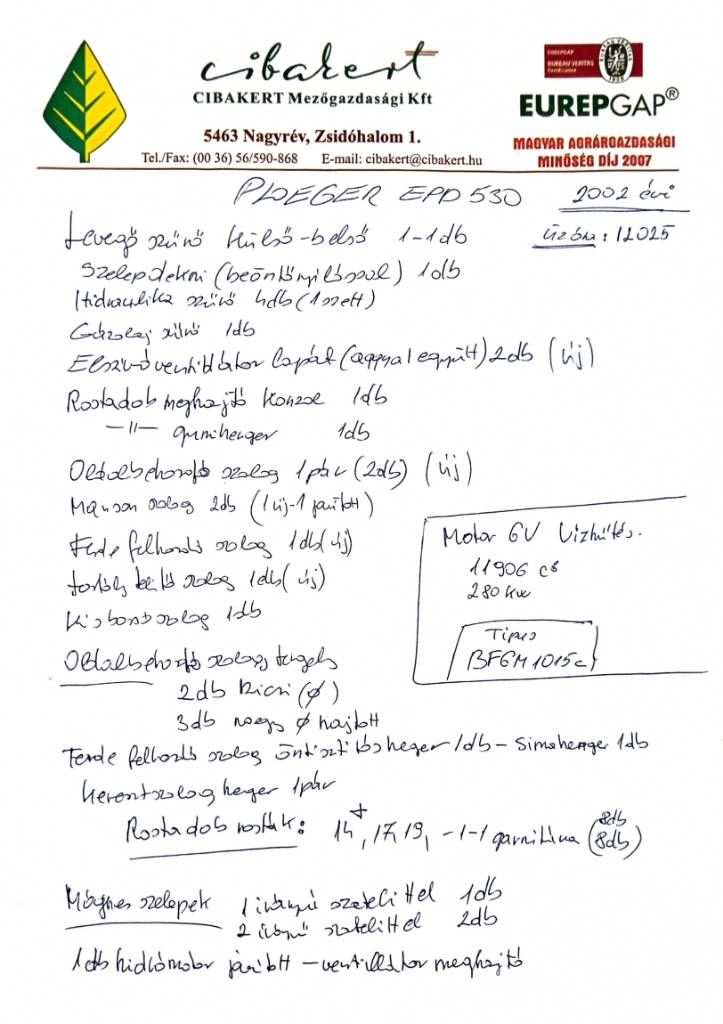 cibakert
CIBAKERT Mezőgazdasági Kft
5463 Nagyrév, Zsidóhalom 1.
Tel./Fax: (00 36) 56/590-868 E-mail: cibakert@cibakert.hu
EUREPGAP
BUREAU VERITAS
Certification
EUREPGAP®
MAGYAR AGRÁRGAZDASÁGI
MINŐSÉG DÍJ 2007
PLOEGER EPD 530 2002 évi
Levegő szűrő külső-belső 1-1db üzóra: 12025
Szelepdekni (beöntőnyílással) 1db
Hidraulika szűrő 4db (1 szett)
Gázolaj szűrő 1db
Elszívóventillátor lapát (aggyal együtt) 2db (új)
Rostadob meghajtó konzol 1db
-"- gumihenger 1db
Oldalbehordó szalag 1 pár (2db) (új)
szalag 2db (1 új-1 javított)
Ferde felhordó szalag 1db (új)
szalag 1db (új)
Kisbontószalag 1db
Motor 6V Vízhűtés.
11906 c
280 kw
Tipus
BF6M 1015c
Oldalbehordó szalag tengely
2db kicsi (ø)
3db nagy ø hajtott
Ferde felhordó szalag öntisztítós henger 1db - Simahenger 1db
Keresztszalag henger 1 pár
Rostadob rosták: 14, 17, 19, -1-1 garnitúra (8db)
8db
Mágnes szelepek 1 irányú szatelittel 1db
2 irányú szatelittel 2db
1db hidromotor javított - ventillátor meghajtó